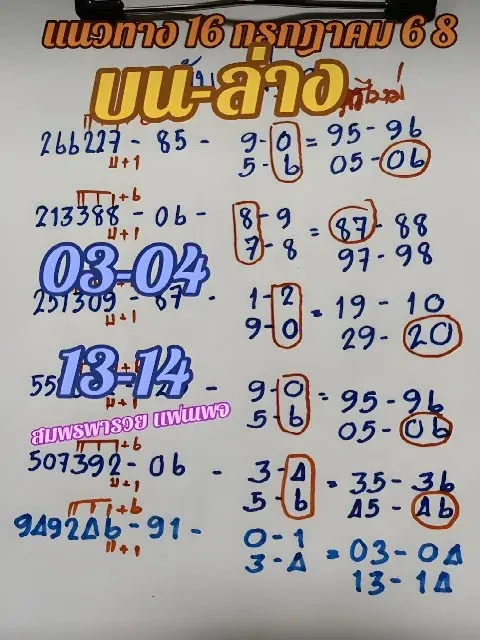 แนวทาง 16 กรกฎาคม 68
บน-ล่าง
266227 - 85 - 9-0 = 95-96
5-6 05-06
บ+1
+6
213388 - 06 - 8-9 = 87-88
7-8 97-98
บ+1
03-04
251309 - 87 - 1-2 = 19-10
9-0 29-20
บ+1
13-14
55 - 9-0 = 95-96
5-6 05-06
+1
สมพรพารวย แฟนเพจ
+6
507392 - 06 - 3-4 = 35-36
5-6 45-46
บ+1
+6
949246 - 91 - 0-1 = 03-04
3-4 13-14
บ+1